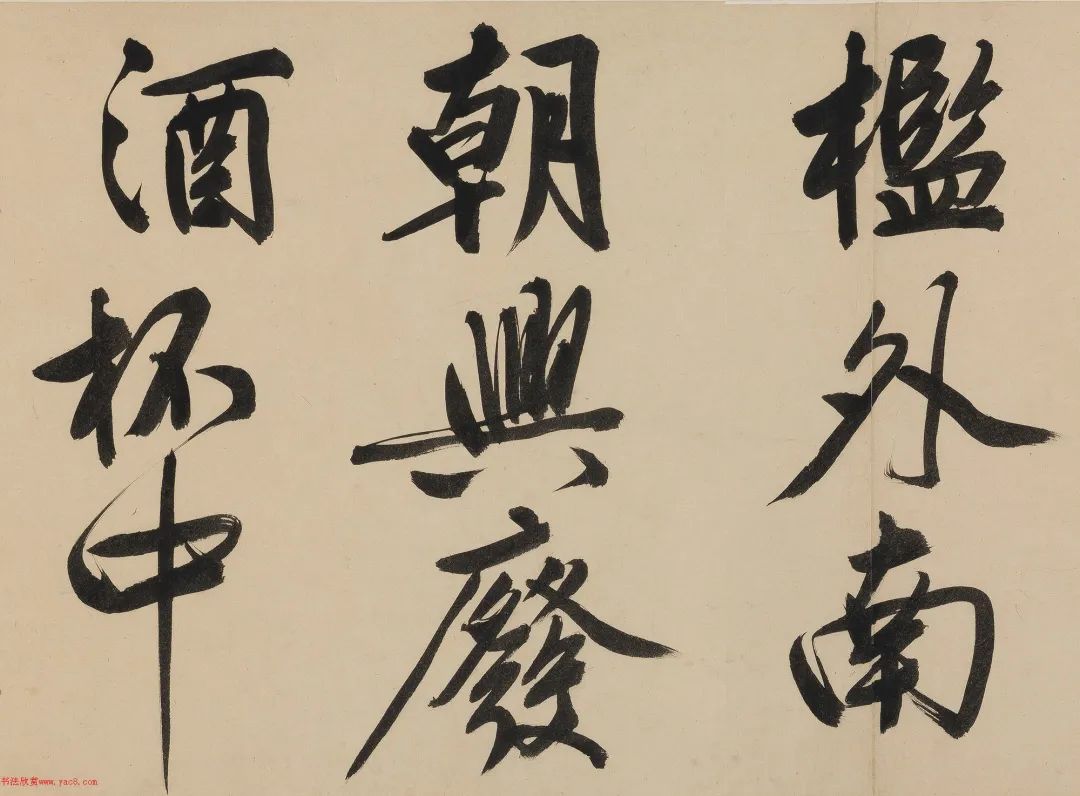 檻外南
朝興廢
酒杯中
书法欣赏www.yac8.com